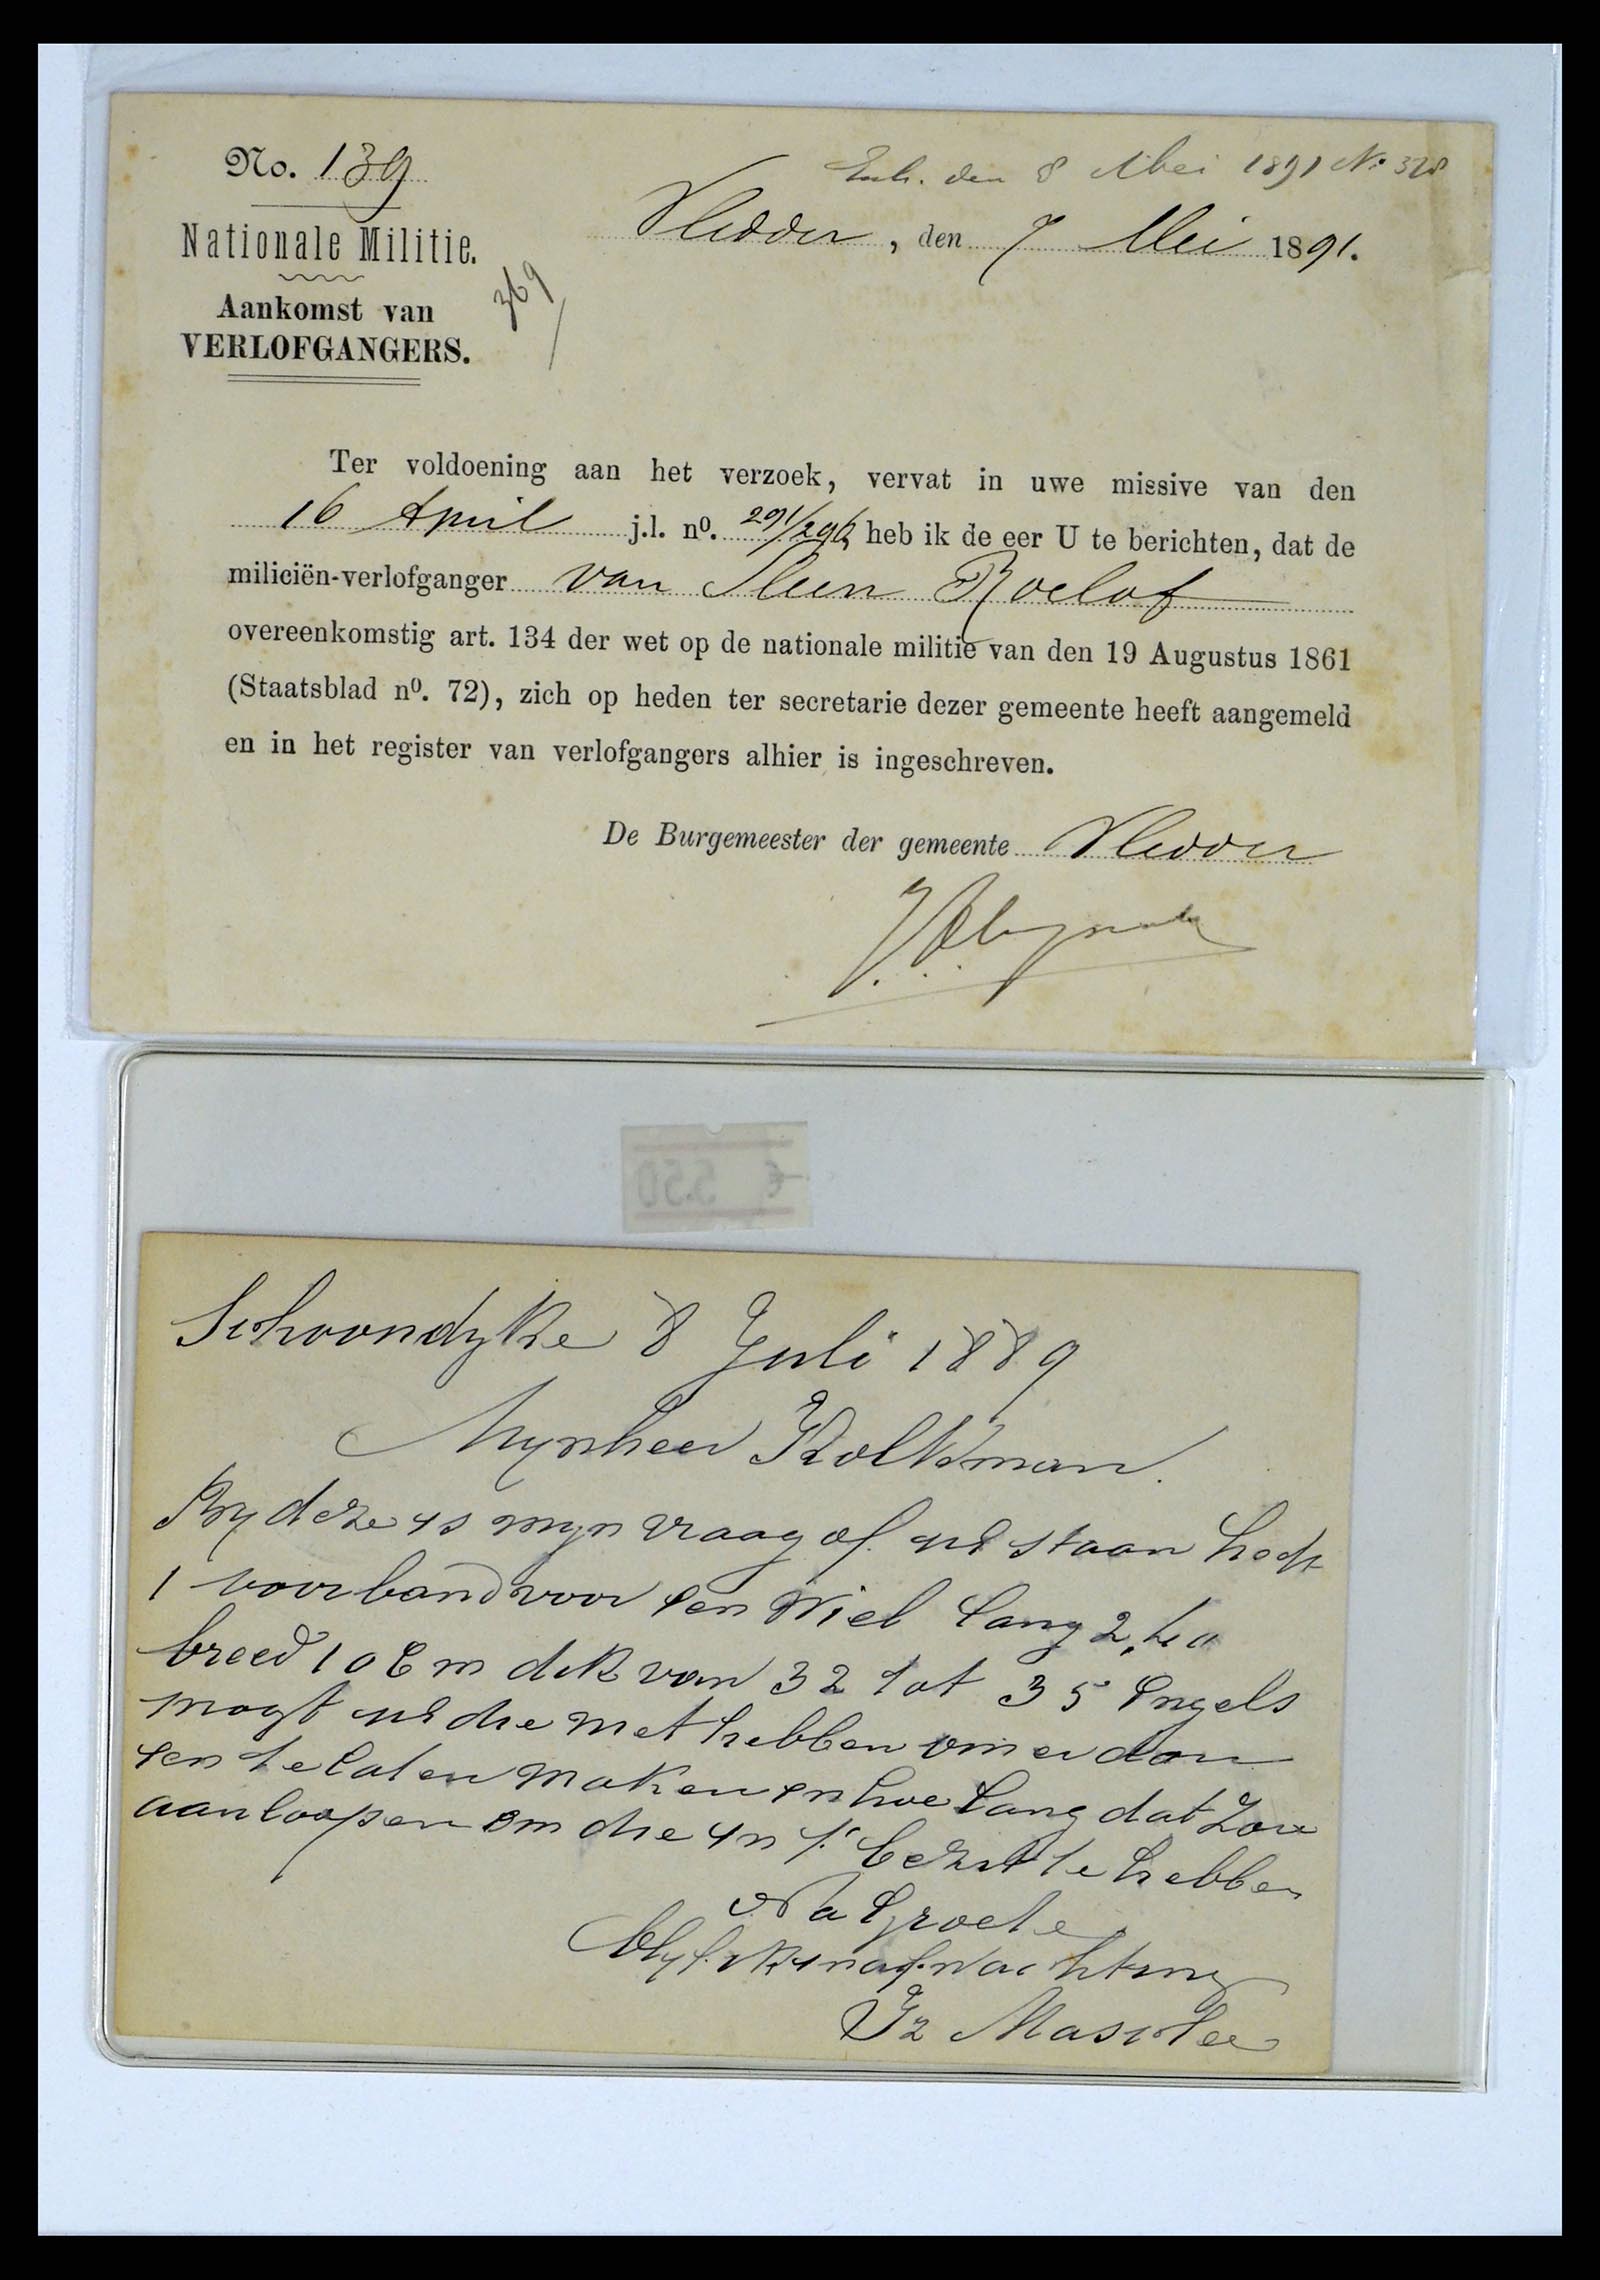 No. 139
Nationale Militie.
Aankomst van
VERLOFGANGERS.
369
den 8 Mei 1891 No 328
Vledder, den 7 Mei 1891.
Ter voldoening aan het verzoek, vervat in uwe missive van den
16 April j.l. no. 291/296, heb ik de eer U te berichten, dat de
miliciën-verlofganger van Sleen Roelof
overeenkomstig art. 134 der wet op de nationale militie van den 19 Augustus 1861
(Staatsblad no. 72), zich op heden ter secretarie dezer gemeente heeft aangemeld
en in het register van verlofgangers alhier is ingeschreven.
De Burgemeester der gemeente Vledder
€ 5.50
Schoondyke 8 Juli 1889
Mynheer Kolkman.
By deze ys myn vraag of staan heeft
1 voor band voor een Wiel lang 2,
breed 10 Cm dik van 32 tot 35 Engels
mogt die niet hebben om er dan
een te laten maken en hoe lang dat Zou
aanloopen om die yn bezit te hebben
Na Groete
Blyf wachting